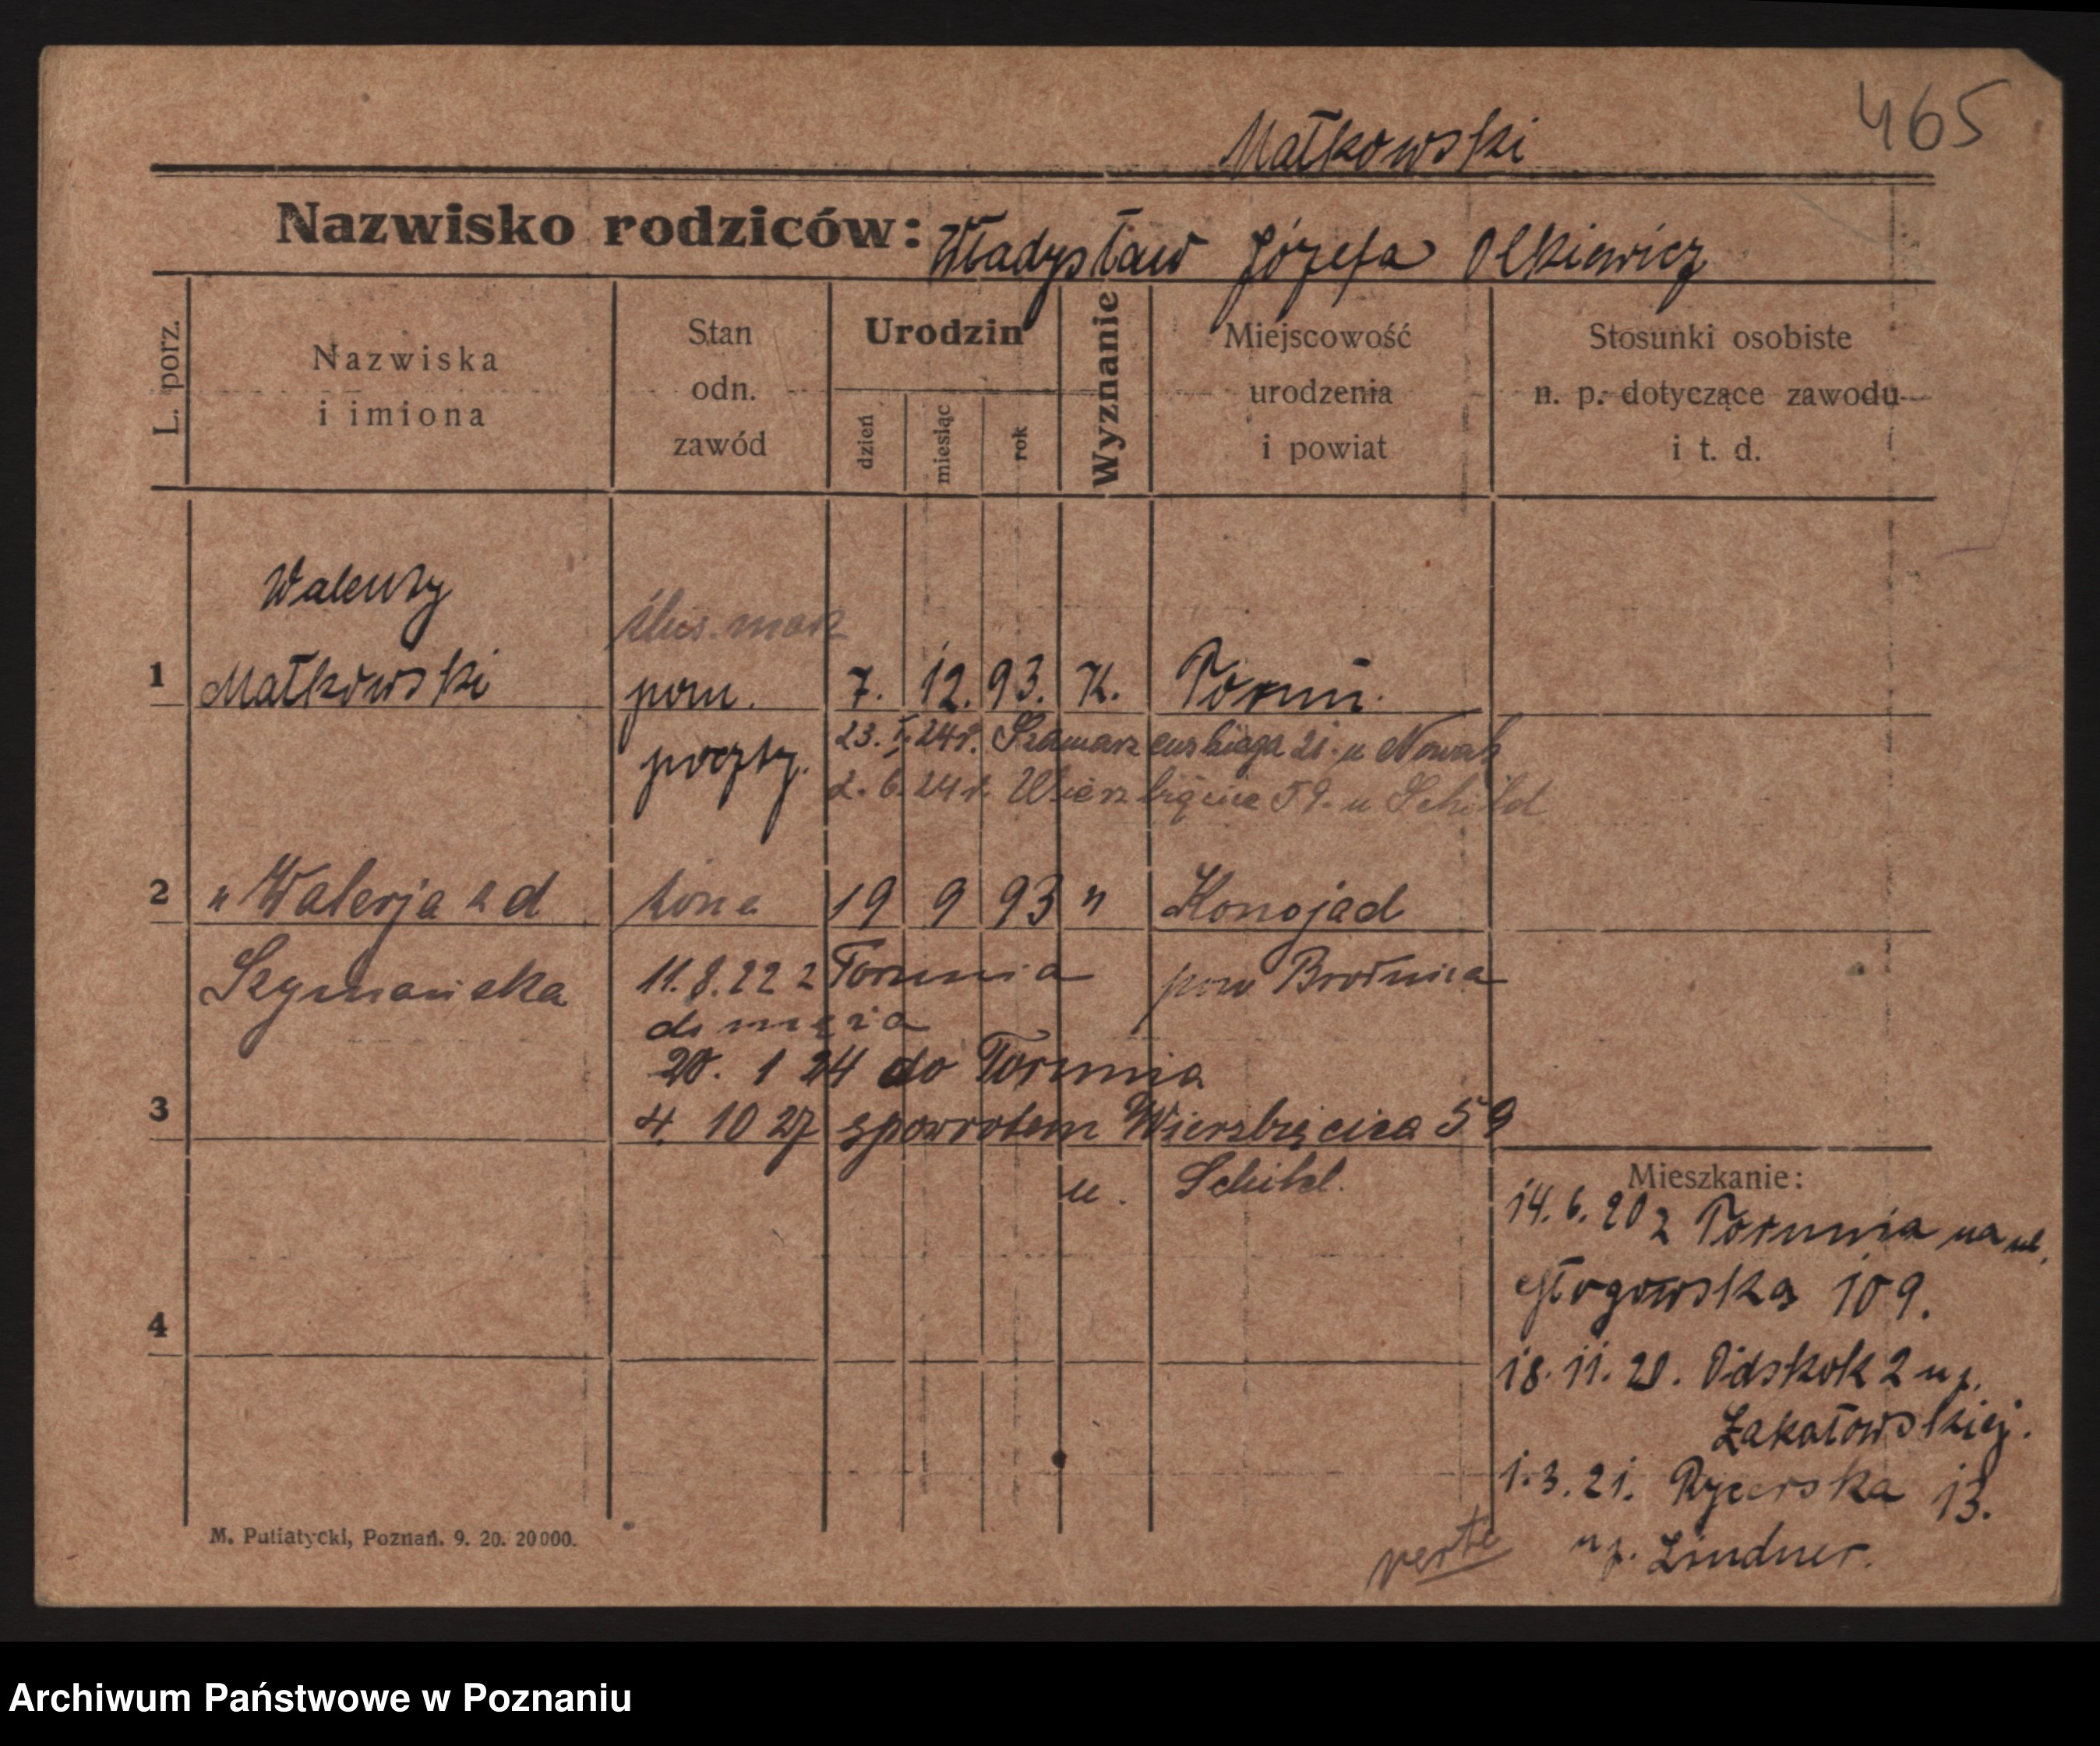 465
Małkowski
Nazwisko rodziców: Władysław Józefa Olkiewicz
L. porz.
Nazwiska
i imiona
Stan
odn.
zawód
Urodzin
dzień
miesiąc
rok
Wyznanie
Miejscowość
urodzenia
i powiat
Stosunki osobiste
n. p. dotyczące zawodu
i t. d.
Walenty
ślus. masz
1 Małkowski pom. 7. 12. 93. K. Toruń.
poczty.
23. I. 24 r. Szamarzewskiego 21. u Nowak
2. 6. 24 r. Wierzbięcice 59. u Schild
2 " Walerja z d żona 19 9 93 " Konojad
Szymańska
11.8.22 z Torunia
pow Brodnica
do męża
20. 1 24 do Torunia
3
4. 10 27 spowrotem Wierzbięcice 59
u. Schild.
4
Mieszkanie:
14. 6. 20 z Torunia na ul.
Głogowska 109.
18. 11. 20. Podskok 2 u p.
Zakatowskiej.
1. 3. 21. Rycerska 13.
u p. Lindner.
verte
M. Putiatycki, Poznań. 9. 20. 20000.
Archiwum Państwowe w Poznaniu